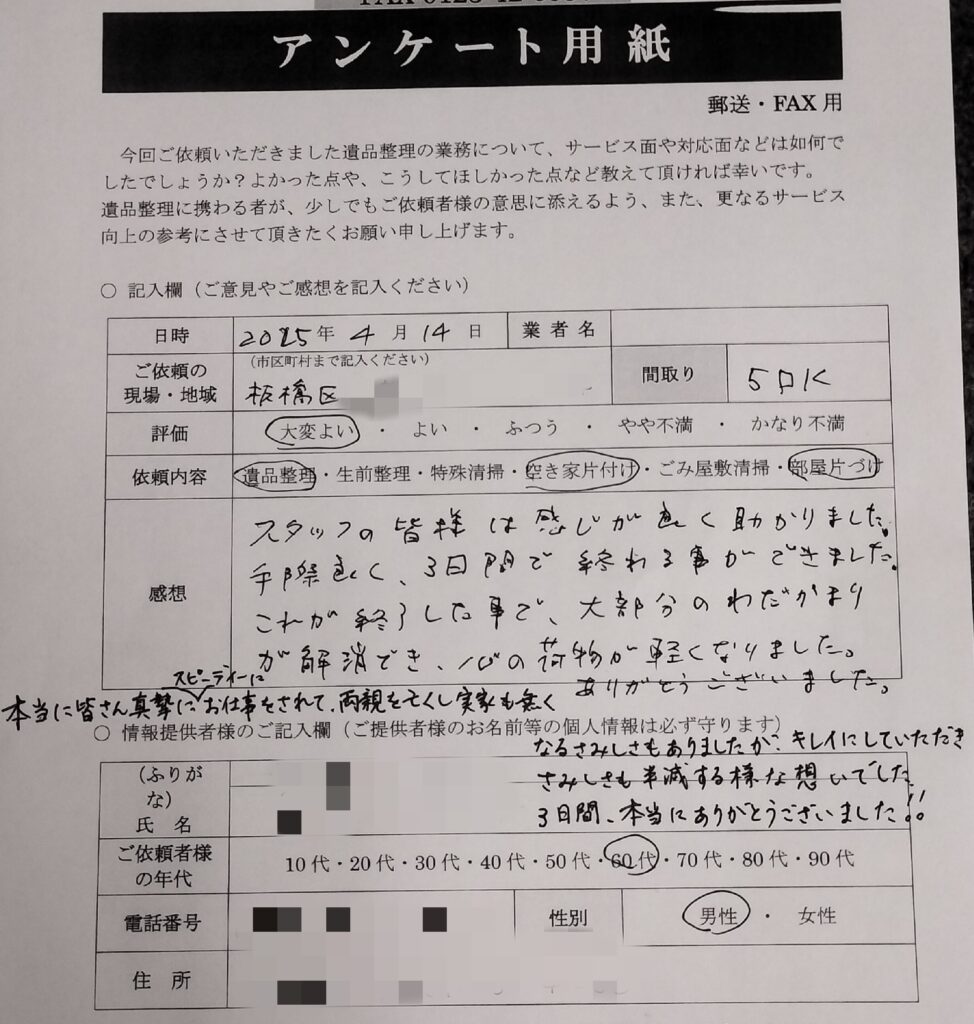 アンケート用紙
郵送・FAX 用
今回ご依頼いただきました遺品整理の業務について、サービス面や対応面などは如何で
したでしょうか？よかった点や、こうしてほしかった点など教えて頂ければ幸いです。
遺品整理に携わる者が、少しでもご依頼者様の意思に添えるよう、また、更なるサービス
向上の参考にさせて頂きたくお願い申し上げます。
○ 記入欄（ご意見やご感想を記入ください）
日時 2025年 4 月 14 日 業者名
ご依頼の
現場・地域
（市区町村まで記入ください）
板橋区
間取り 5DK
評価 大変よい ・ よい ・ ふつう ・ やや不満 ・ かなり不満
依頼内容 遺品整理・生前整理・特殊清掃・空き家片付け・ごみ屋敷清掃・部屋片づけ
感想
スタッフの皆様は感じが良く助かりました。
手際良く、3日間で終わる事ができました。
これが終了した事で、大部分のわだかまり
が解消でき、心の荷物が軽くなりました。
ありがとうございました。
スピーディーに
本当に皆さん真摯にお仕事をされて、両親を亡くし実家も無く
なるさみしさもありましたが、キレイにしていただき
さみしさも半減する様な想いでした
3日間、本当にありがとうございました!!
○ 情報提供者様のご記入欄（ご提供者様のお名前等の個人情報は必ず守ります）
（ふりが
な）
氏 名
ご依頼者様
の年代
10代・20代・30代・40代・50代・60代・70代・80代・90代
電話番号 性別 男性 ・ 女性
住 所